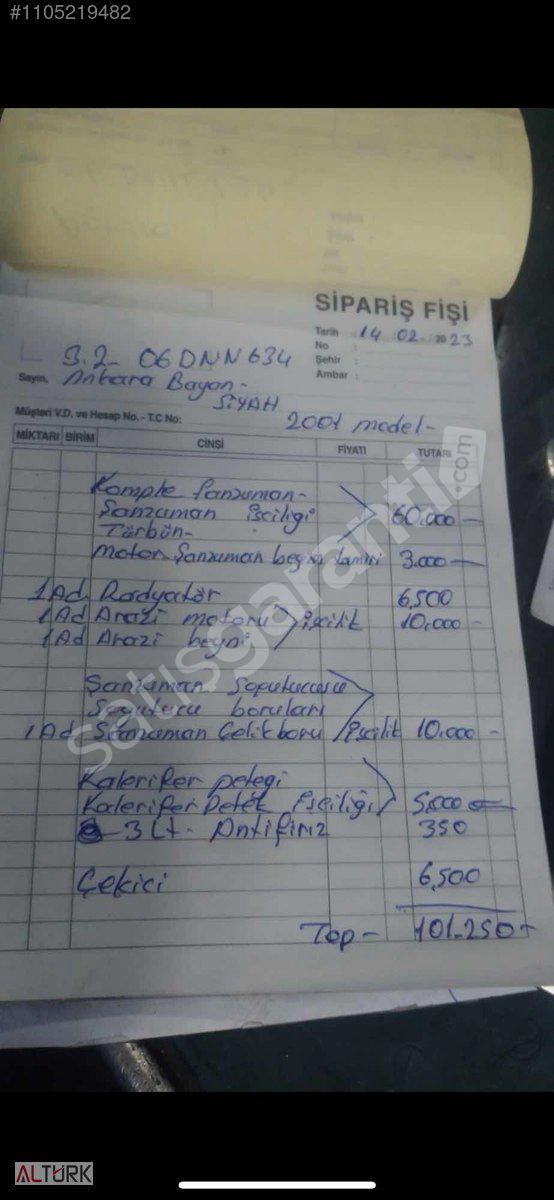 #1105219482
SİPARİŞ FİŞİ
Tarih : 14 02. 2023
No :
Şehir :
Ambar :
3.2 06 DNN 634
Sayın, Ankara Bayan-
SİYAH
Müşteri V.D. ve Hesap No. - T.C No:
2001 model-
MİKTARI BİRİM CİNSİ FİYATI TUTARI
Komple Şanzuman-
Şanzuman işciligi 60.000-
Törbün-
Motor Şanzuman beyni tamiri 3.000-
1 Ad Radyatör 6,500
1 Ad Arazi motoru işcilik 10.000-
1 Ad Arazi beyni
Şanzuman Soputucusu
Soputucu boruları
1 Ad Şanzuman Çelik boru işcilik 10.000-
Kalerifer petegi
Kalerifer Petek işciliği 5.000
3 Lt- Antifiriz 350
Çekici 6,500
Top- 101.250
satısgaranti.com
ALTÜRK